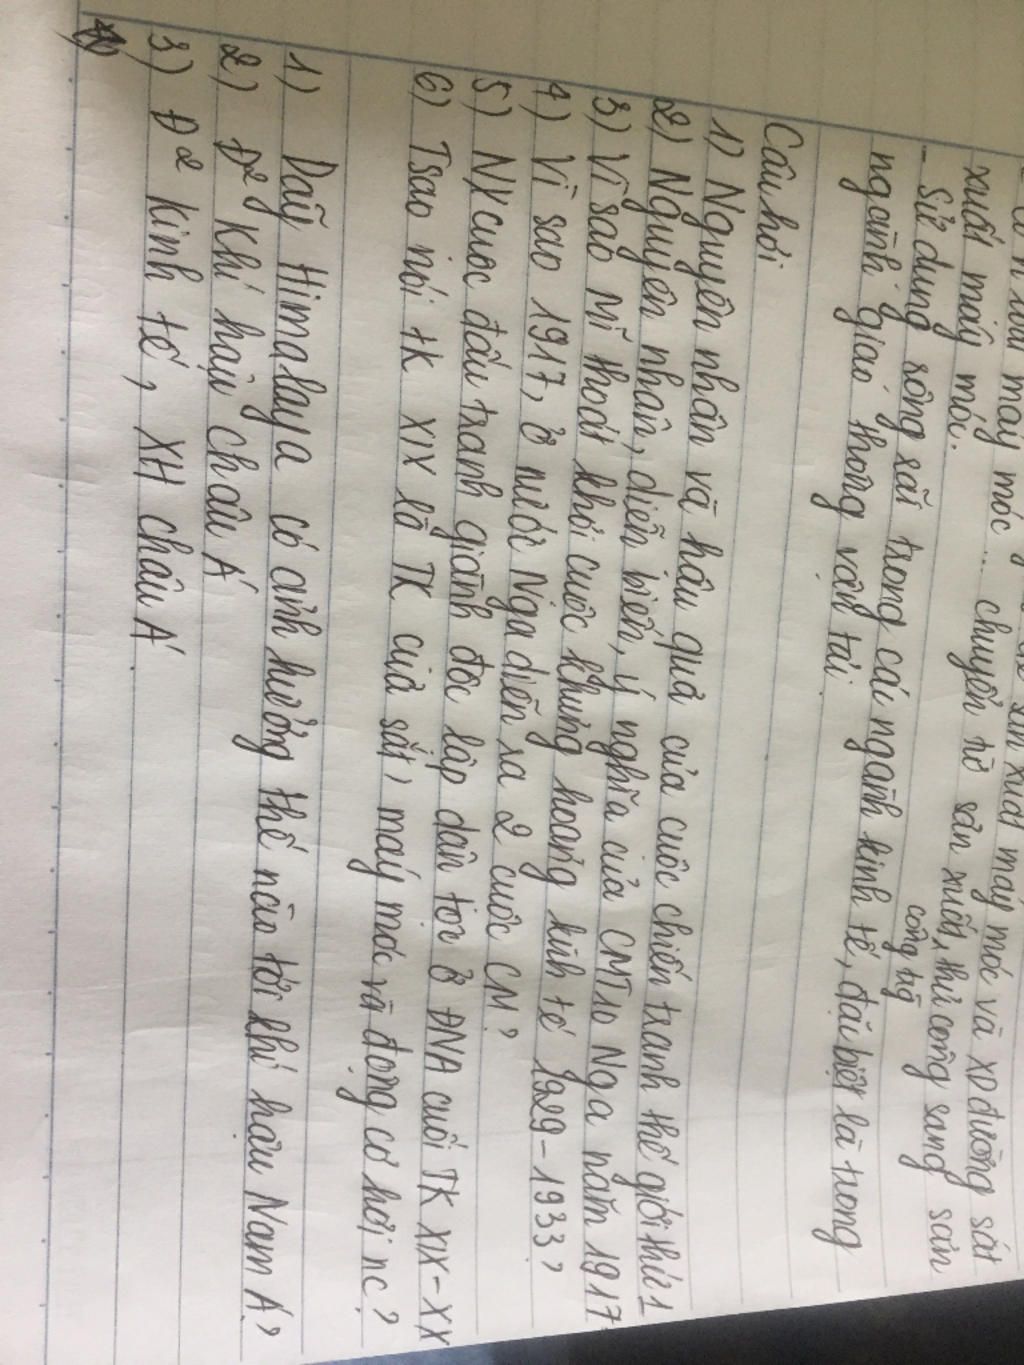 xuất máy móc và xd đường sắt
xuất máy móc. chuyển từ sản xuất thủ công sang sản
công ng
- Sử dụng rộng rãi trong các ngành kinh tế, đặc biệt là trong
ngành giao thông vận tải.
Câu hỏi
1) Nguyên nhân và hậu quả của cuộc chiến tranh thế giới thứ 1
2) Nguyên nhân, diễn biến, ý nghĩa của CMT10 Nga năm 1917.
3) Vì sao Mĩ thoát khỏi cuộc khủng hoảng kinh tế 1929-1933?
4) Vì sao 1917, ở nước Nga diễn ra 2 cuộc CM?
5) NX cuộc đấu tranh giành độc lập dân tộc ở ĐNA cuối TK XIX-XX
6) Tsao nói tk XIX là TK của sắt, máy móc và động cơ hơi nc?
1) Dãy Himalaya có ảnh hưởng thế nào tới khí hậu Nam Á?
2) Đ² khí hậu châu Á
3) Đ² kinh tế, XH châu Á.